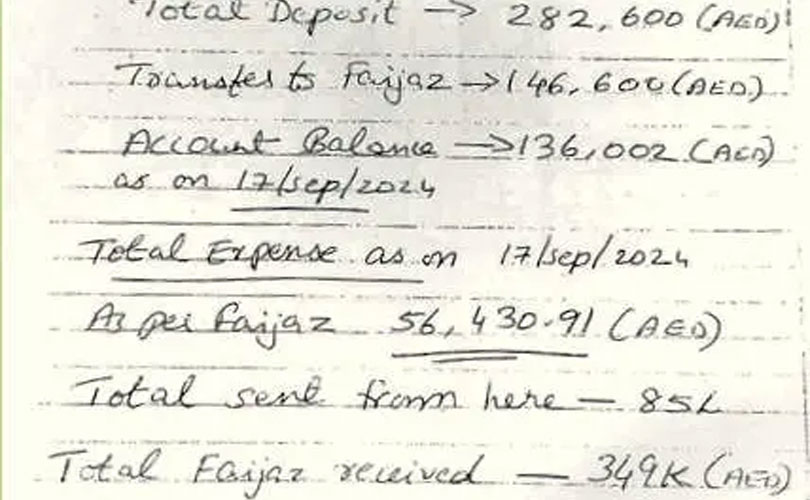 Total Deposit → 282,600 (AED)
Transfer to Faijaz → 146,600 (AED)
Account Balance → 136,002 (AED)
as on 17/sep/2024
Total Expense as on 17/sep/2024
As per Faijaz 56,430.91 (AED)
Total sent from here — 85L
Total Faijaz received — 349K (AED)